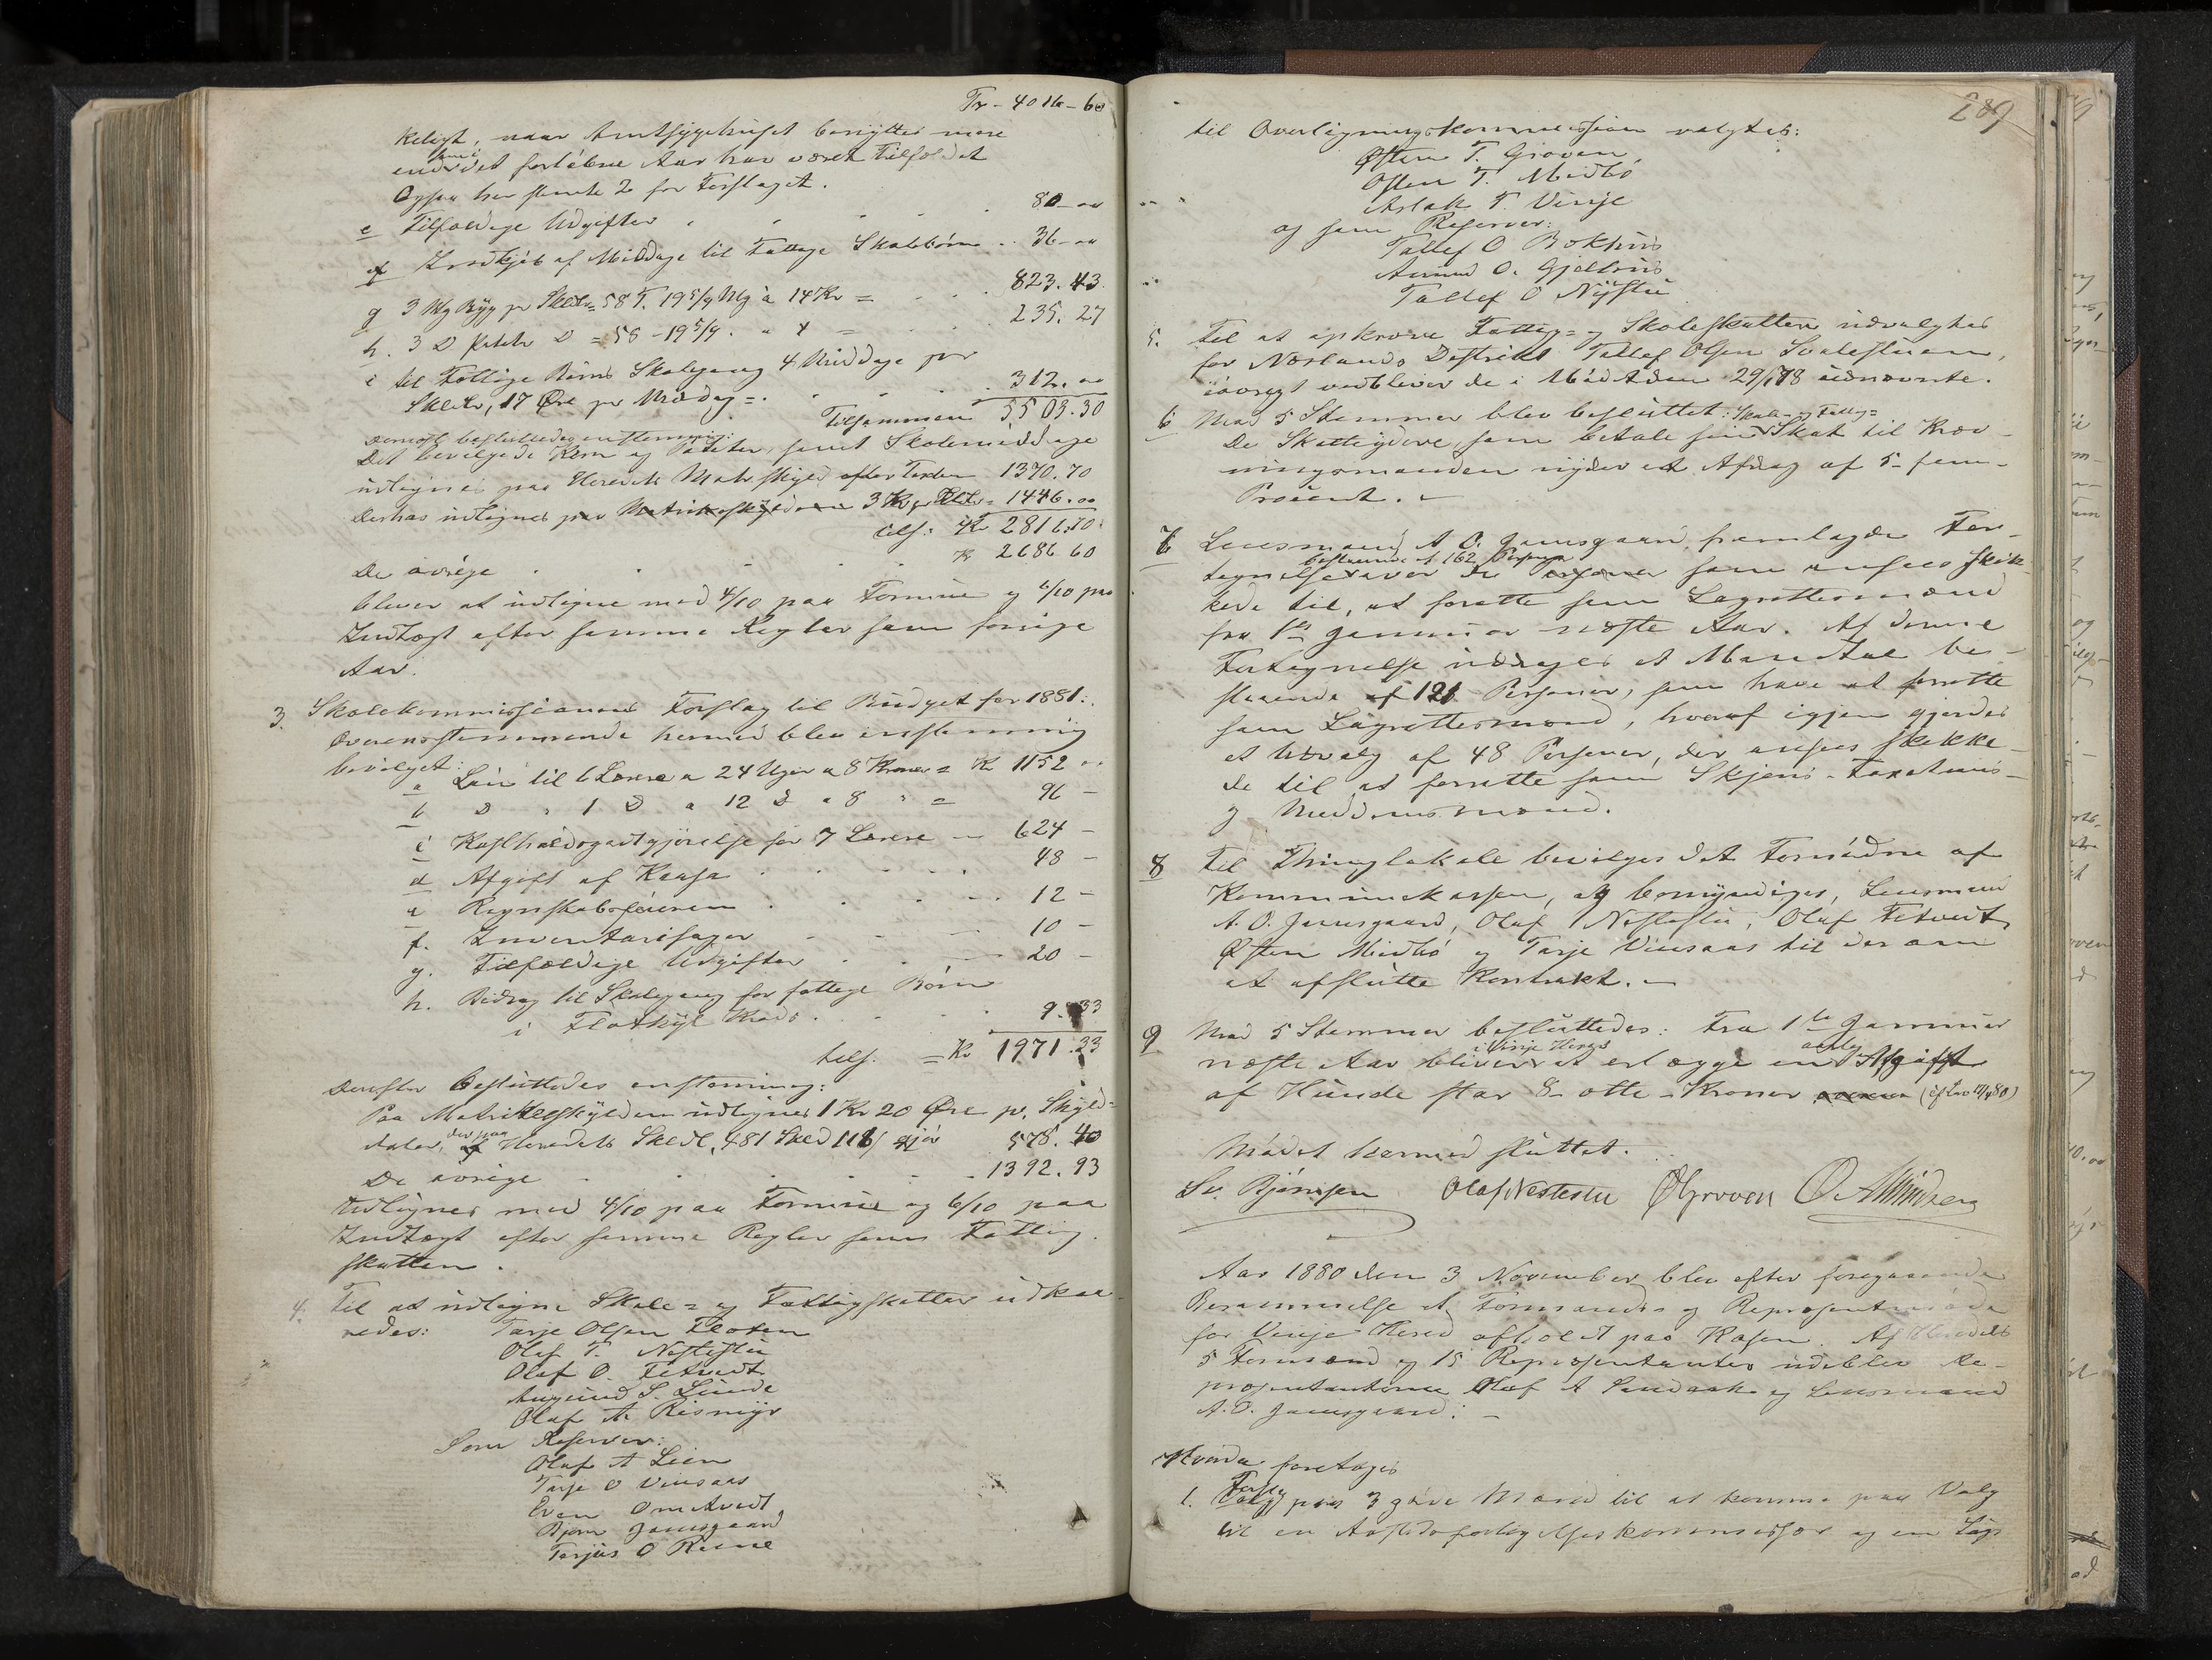 Tr. - 4016 - 60
keligt, naar Amtssygehuset benyttes mere
end i det forløbne Aar har været Tilfældet
Ogsaa her stemte 2 for Forslaget.
e Tilfældige Udgifter . . . . 80 - 00
f Indkjøb af Middage til Fattige Skolebørn . . 36 - 00
g 3 Mg Byg pr Skdlr = 58 T. 19 5/9 Mg à 14 Kr = . . . 823. 43
h. 3 D Poteter D = 58 - 19 5/9. " 4 = . . . 235. 27
i til Fattige Børns Skolegang 4 Middage pr
Skdlr, 17 Øre pr Middag = . . . . 312. 00
Tilsammen 5503. 30
Dernæst besluttedes enstemmig:
Det bevilgede Korn og Poteter, samt Skolemiddage
udlignes paa Heredets Matr. skyld efter Taxten 1370. 70
Derhos udlignes paa Matrikelskylden 3 Kr pr Skdlr = 1446. 00
tils: Kr 2816. 70
De øvrige . . . . Kr 2686 60
bliver at udligne med 4/10 paa Formue og 6/10 paa
Indtægt efter samme Regler som forrige
Aar.
3. Skolekommissionens Forslag til Budget for 1881:
Overensstemmende hermed blev enstemmig
bevilget:
a Løn til 6 Lærere a 24 Uger a 8 Kroner = Kr 1152 "
b D " 1 D a 12 D a 8 " = 96 -
c Kostholdsgodtgjørelse for 7 Lærere - 624 -
d Afgift af Kaasa . . . . . 48 -
e Regnskabsføreren . . . . 12 -
f. Inventarisager - - - 10 -
g. Tilfældige Udgifter . . . 20 -
h. Bidrag til Skolegang for fattige Børn
i Flothyl Kreds . . . . . 9. 33
tils. = Kr 1971. 33
Derefter besluttedes enstemmig:
Paa Matrikelskylden udlignes 1 Kr 20 Øre pr. Skyld-
daler, der paa Heredets Skdl, 481 Skd 118/ gjør 578. 40
De øvrige - - - - 1392. 93
Udlignes med 4/10 paa Formue og 6/10 paa
Indtægt efter samme Regler som Fattig-
skatten.
4. Til at udligne Skole- og Fattigskatter udkaa-
redes: Tarje Olsen Floten
Olaf T. Nestestu
Olaf O. Fetvedt
Augund S. Lunde
Olaf A. Rismyr
Som Reserver:
Olaf A Lien
Tarje O Vinsaas
Even Omtvedt
Bjørn Jamsgaard
Tarjus O Ruene
289
til Overligningskommission valgtes:
Østen T. Groven
Østen T. Midbø
Aslak T. Vinje
og som Reserver:
Tallef O Bokhus
Aamund O. Gjelhus
Tallef O Nystu
5. Til at opkræve Fattig- og Skoleskatten udvalgtes
for Næslands Distrikt Tallef Olsen Svalestuen,
iøvrigt vedbliver de i Mødet den 29/1 78 udnævnte.
6 Med 5 Stemmer blev besluttet:
De Skatteydere, som betale sin Skole- og Fattig- Skat til Kræv-
ningsmanden nyder et Afdrag af 5 - fem -
Procent. -
7 Lensmand A O. Jamsgaard fremlagde For-
tegnelse bestaaende af 162 Personer over de Personer som ansees skik-
kede til, at forrette som Lagrettesmænd
fra 1ste Januar næste Aar. Af denne
Fortegnelse udtoges et Mandtal be-
staaende af 121 Personer, som have at forrette
som Lagrettesmænd, hvoraf igjen gjordes
et Udvalg af 48 Personer, der ansees skikke-
de til at forrette som Skjøns- Taxations-
og Meddomsmænd.
8 Til Thinglokale bevilges det Fornødne af
Kommunekassen, og bemyndiges, Lensmand
A. O. Jamsgaard, Olaf Nestestu, Olaf Fetvedt,
Østen Midbø og Tarje Vinsaas til derom
at afslutte Kontrakt. -
9 Med 5 Stemmer besluttedes: Fra 1ste Januar
næste Aar bliver i Vinje Hered at erlægge en aarlig Afgift
af Hunde stor 8 - otte - Kroner
Mødet hermed sluttet.
Sv. Bjønsen Olaf Nestestu Ø Groven O. A Mindreng
Aar 1880 den 3 November blev efter foregaaende
Berammelse et Formands- og Repræsentmøde
for Vinje Hered afholdt paa Kosen. Af Heredets
5 Formænd og 15 Repræsentanter udeblev Re-
præsentanterne Olaf A Sandaak og Lensmand
A. O. Jamsgaard: -
Hvorda foretoges
1. Forslag paa 3 gode Mænd til at komme paa Valg
til en Kommissær og en Lag-